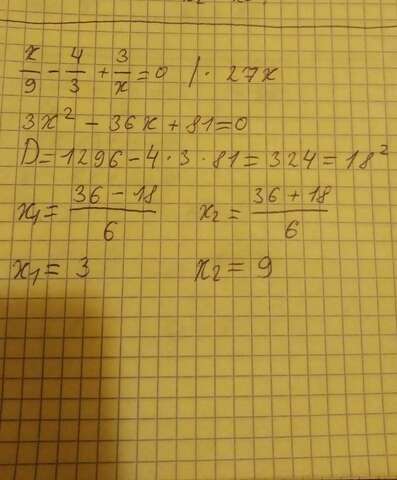 x/9 - 4/3 + 3/x = 0 / · 27x
3x² - 36x + 81 = 0
D = 1296 - 4 · 3 · 81 = 324 = 18²
x₁ = (36 - 18)/6 x₂ = (36 + 18)/6
x₁ = 3 x₂ = 9